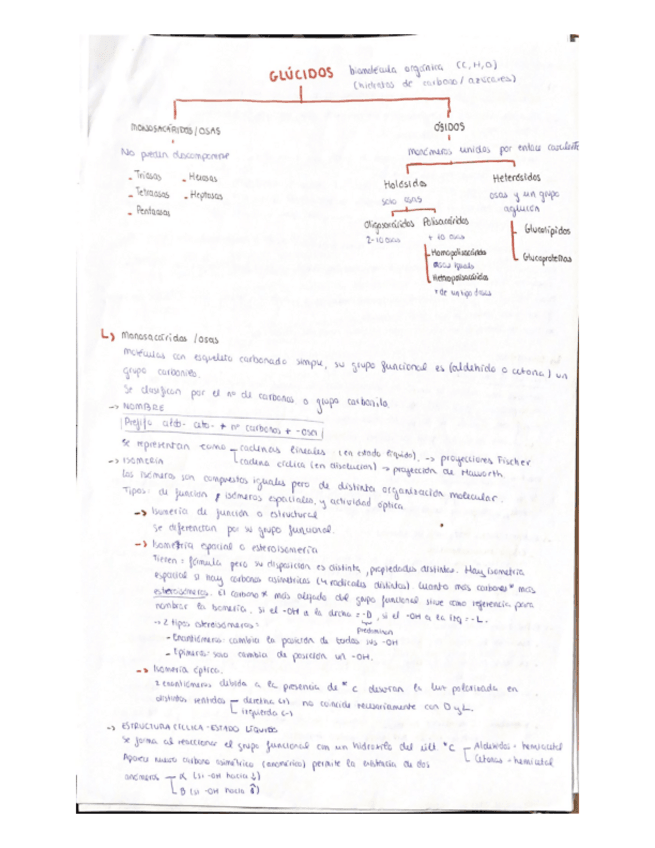 GLÚCIDOS biomolécula orgánica (C, H, O)
(hidratos de carbono / azúcares)
MONOSACÁRIDOS / OSAS
ÓSIDOS
No pueden descomponerse
monómeros unidos por enlace covalente
- Triosas - Hexosas
- Tetraosas - Heptosas
- Pentosas
Holósidos
solo osas
Heterósidos
osas y un grupo
aglucón
Oligosacáridos Polisacáridos
2-10 osas + 10 osas
Glucolípidos
Glucoproteínas
Homopolisacáridos
osas iguales
Heteropolisacáridos
+ de un tipo d osas
Monosacáridos / osas
moléculas con esqueleto carbonado simple, su grupo funcional es (aldehído o cetona) un
grupo carbonilo.
Se clasifican por el nº de carbonos o grupo carbonilo.
-> NOMBRE
Prefijo aldo- ceto- + nº carbonos + -osa
Se representan como cadenas lineales (en estado líquido). -> proyecciones Fischer
cadena cíclica (en disolución) -> proyección de Haworth.
-> ISOMERÍA
Los isómeros son compuestos iguales pero de distinta organización molecular.
Tipos: de función, isómeros espaciales, y actividad óptica
-> Isomería de función o estructural
Se diferencian por su grupo funcional.
-> Isomería espacial o estereoisomería
Tienen = fórmula pero su disposición es distinta, propiedades distintas. Hay isometría
espacial si hay carbonos asimétricos (4 radicales distintos) cuanto más carbones* más
estereoisómeros. El carbono* más alejado del grupo funcional sirve como referencia para
nombrar la isomería, si el -OH a la drcha = -D, si el -OH a la izq = -L.
Predominan
-> 2 tipos estereoisómeros =
- Enantiómeros: cambia la posición de todos los -OH
- Epímeros: solo cambia de posición un -OH.
-> Isomería óptica.
2 enantiómeros debido a la presencia de *C desvían la luz polarizada en
distintos sentidos derecha (+) no coincide necesariamente con D y L.
izquierda (-)
-> ESTRUCTURA CÍCLICA - ESTADO LÍQUIDO
Se forma al reaccionar el grupo funcional con un hidroxilo del últ *C Aldehídos - hemiacetal
Cetonas - hemicetal
Aparece nuevo carbono asimétrico (anomérico) permite la existencia de dos
anómeros α (si -OH hacia ↓)
β (si -OH hacia ↑)